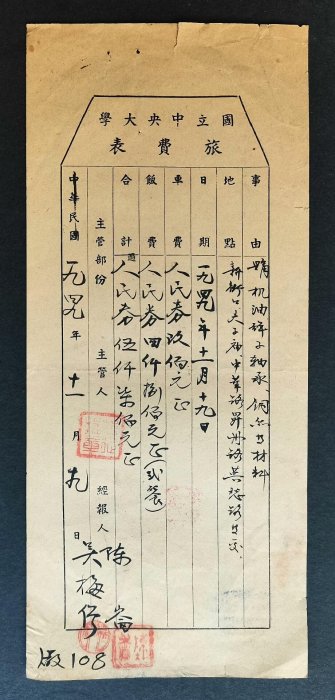 國立中央大學
旅費表
事由 購机油 子軸承 銅 材料
地點 新街口夫子廟中華路昇州路
日期 一九四九年十一月十九日
車費 人民券玖佰元正
飯費 人民券四仟捌佰元正(弍餐)
合計 人民券伍仟柒佰元正
主管部份 主管人 經報人 陳崙
吳梅
中華民國一九四九年十一月十九日
啟108